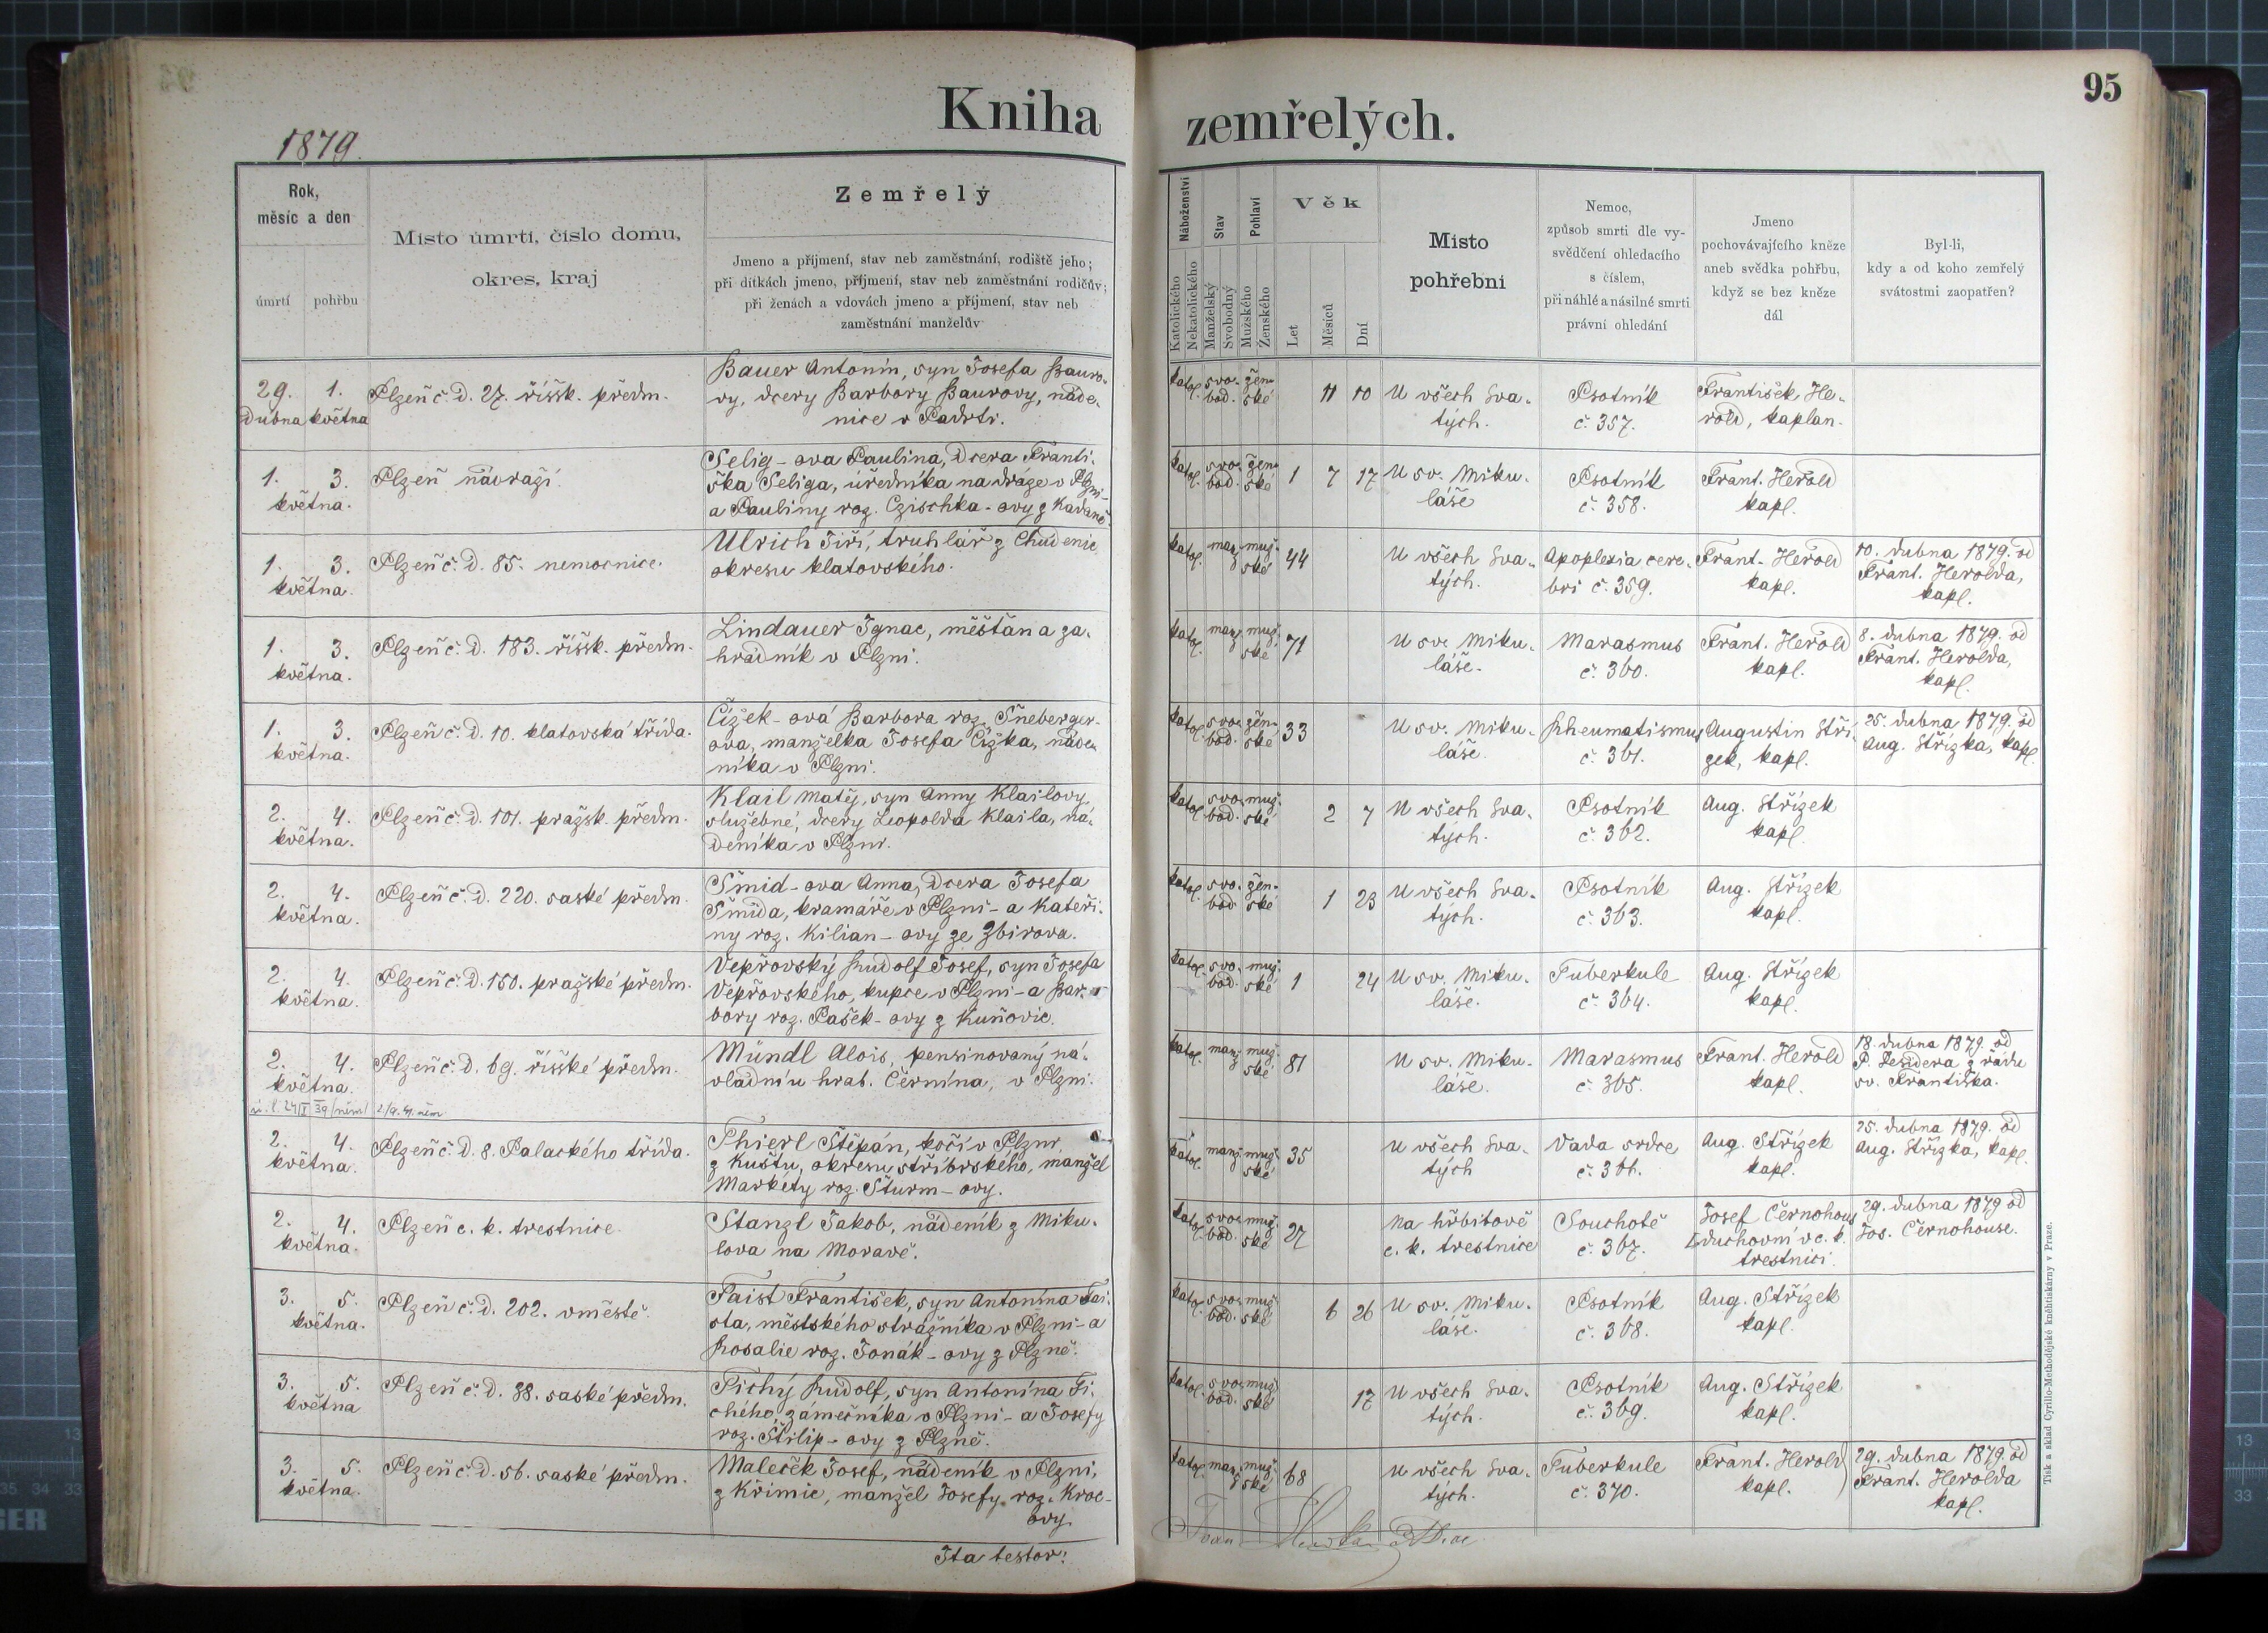 95
Kniha zemřelých.
1879.
Rok,
měsíc a den
úmrtí pohřbu
Místo úmrtí, číslo domu,
okres, kraj
Zemřelý
Jmeno a příjmení, stav neb zaměstnání, rodiště jeho;
při dítkách jmeno, příjmení, stav neb zaměstnání rodičův;
při ženách a vdovách jmeno a příjmení, stav neb
zaměstnání manželův
Náboženství
Katolického
Nekatolického
Stav
Manželský
Svobodný
Pohlaví
Mužského
Ženského
Věk
Let
Měsíců
Dní
Místo
pohřební
Nemoc,
způsob smrti dle vy-
svědčení ohledacího
s číslem,
při náhlé a násilné smrti
právní ohledání
Jmeno
pochovávajícího kněze
aneb svědka pohřbu,
když se bez kněze
dál
Byl-li,
kdy a od koho zemřelý
svátostmi zaopatřen?
29. 1.
dubna května
Plzeň č. d. 27. říšsk. předm.
Bauer Antonín, syn Josefa Bauro-
vy, dcery Barbory Baurovy, náde-
nice v Padrti.
katol. svo- žen-
bod. ské
11 10
U všech Sva-
tých.
Psotník
č. 357.
František He-
rold, kaplan.
1. 3.
května.
Plzeň nádraží.
Selig-ova Paulina, dcera Franti-
ška Seliga, úředníka na dráze v Plzni-
a Pauliny roz. Czischka-ovy z Kadaně.
katol. svo- žen-
bod. ské
1 7 17
U sv. Miku-
láše
Psotník
č. 358.
Frant. Herold
kapl.
1. 3.
května.
Plzeň č. d. 85. nemocnice.
Ulrich Jiří, truhlář z Chudenic
okresu klatovského.
katol. manž. muž-
ské
44
U všech Sva-
tých.
Apoplexia cere-
bri č. 359.
Frant. Herold
kapl.
10. dubna 1879. od
Frant. Herolda,
kapl.
1. 3.
května.
Plzeň č. d. 183. říšsk. předm.
Lindauer Ignac, měšťan a za-
hradník v Plzni.
katol. manž. muž-
ské
71
U sv. Miku-
láše.
Marasmus
č. 360.
Frant. Herold
kapl.
8. dubna 1879. od
Frant. Herolda,
kapl.
1. 3.
května.
Plzeň č. d. 10. klatovská třída.
Čížek-ová Barbora roz. Šneberger-
ova, manželka Josefa Čížka, náde-
níka v Plzni.
katol. svo- žen-
bod. ské
33
U sv. Miku-
láše.
Rheumatismus
č. 361.
Augustin Stří-
zek, kapl.
25. dubna 1879. od
Aug. Střízka, kapl.
2. 4.
května.
Plzeň č. d. 101. pražsk. předm.
Klail Matěj, syn Anny Klailovy,
služebné, dcery Leopolda Klaila, ná-
deníka v Plzni.
katol. svo- muž-
bod. ské
2 7
U všech Sva-
tých.
Psotník
č. 362.
Aug. Střízek
kapl.
2. 4.
května.
Plzeň č. d. 220. saské předm.
Šmid-ova Anna, dcera Josefa
Šmida, kramáře v Plzni- a Kateři-
ny roz. Kilian-ovy ze Zbirova.
katol. svo- žen-
bod. ské
1 23
U všech Sva-
tých.
Psotník
č. 363.
Aug. Střízek
kapl.
2. 4.
května.
Plzeň č. d. 150. pražské předm.
Vepřovský Rudolf Josef, syn Josefa
Vepřovského, kupce v Plzni- a Bar-
bory roz. Pašek-ovy z Kuňovic.
katol. svo- muž-
bod. ské
1 24
U sv. Miku-
láše.
Tuberkule
č. 364.
Aug. Střízek
kapl.
2. 4.
května.
Plzeň č. d. 69. říšské předm.
Mündl Alois, pensinovaný ná-
vladníu hrab. Černína, v Plzni.
katol. manž. muž-
ské
81
U sv. Miku-
láše.
Marasmus
č. 365.
Frant. Herold
kapl.
18. dubna 1879. od
P. Desidera z řádu
sv. Františka.
2. 4.
května.
Plzeň č. d. 8. Palackého třída.
Thierl Štěpán, kočí v Plzni,
z Kuštu, okresu stříbrského, manžel
Markéty roz. Šturm-ovy.
katol. manž. muž-
ské
35
U všech Sva-
tých
Vada srdce
č. 366.
Aug. Střízek
kapl.
25. dubna 1879. od
Aug. Střízka, kapl.
2. 4.
května.
Plzeň c. k. trestnice.
Stanzl Jakob, nádeník z Miku-
lova na Moravě.
katol. svo- muž-
bod. ské
27
Na hřbitově
c. k. trestnice
Souchotě
č. 367.
Josef Černohous
duchovní v c. k.
trestnici.
29. dubna 1879 od
Jos. Černohouse.
3. 5.
května.
Plzeň č. d. 202. vměstě.
Faist František, syn Antonína Fai-
sta, městského strážníka v Plzni- a
Rosalie roz. Jonák-ovy z Plzně.
katol. svo- muž-
bod. ské
6 26
U sv. Miku-
láše.
Psotník
č. 368.
Aug. Střízek
kapl.
3. 5.
května
Plzeň č. d. 88. saské předm.
Tichý Rudolf, syn Antonína Ti-
chého, zámečníka v Plzni- a Josefy
roz. Štilip-ovy z Plzně.
katol. svo- muž-
bod. ské
17
U všech Sva-
tých.
Psotník
č. 369.
Aug. Střízek
kapl.
3. 5.
května.
Plzeň č. d. 56. saské předm.
Maleček Josef, nádeník v Plzni,
z Křimic, manžel Josefy roz. Kroc-
ovy.
katol. manž. muž-
ské
68
U všech Sva-
tých.
Tuberkule
č. 370.
Frant. Herold
kapl.
29. dubna 1879. od
Frant. Herolda
kapl.
Ita testor:
Tisk a sklad Cyrillo-Methodějské knihtiskárny v Praze.